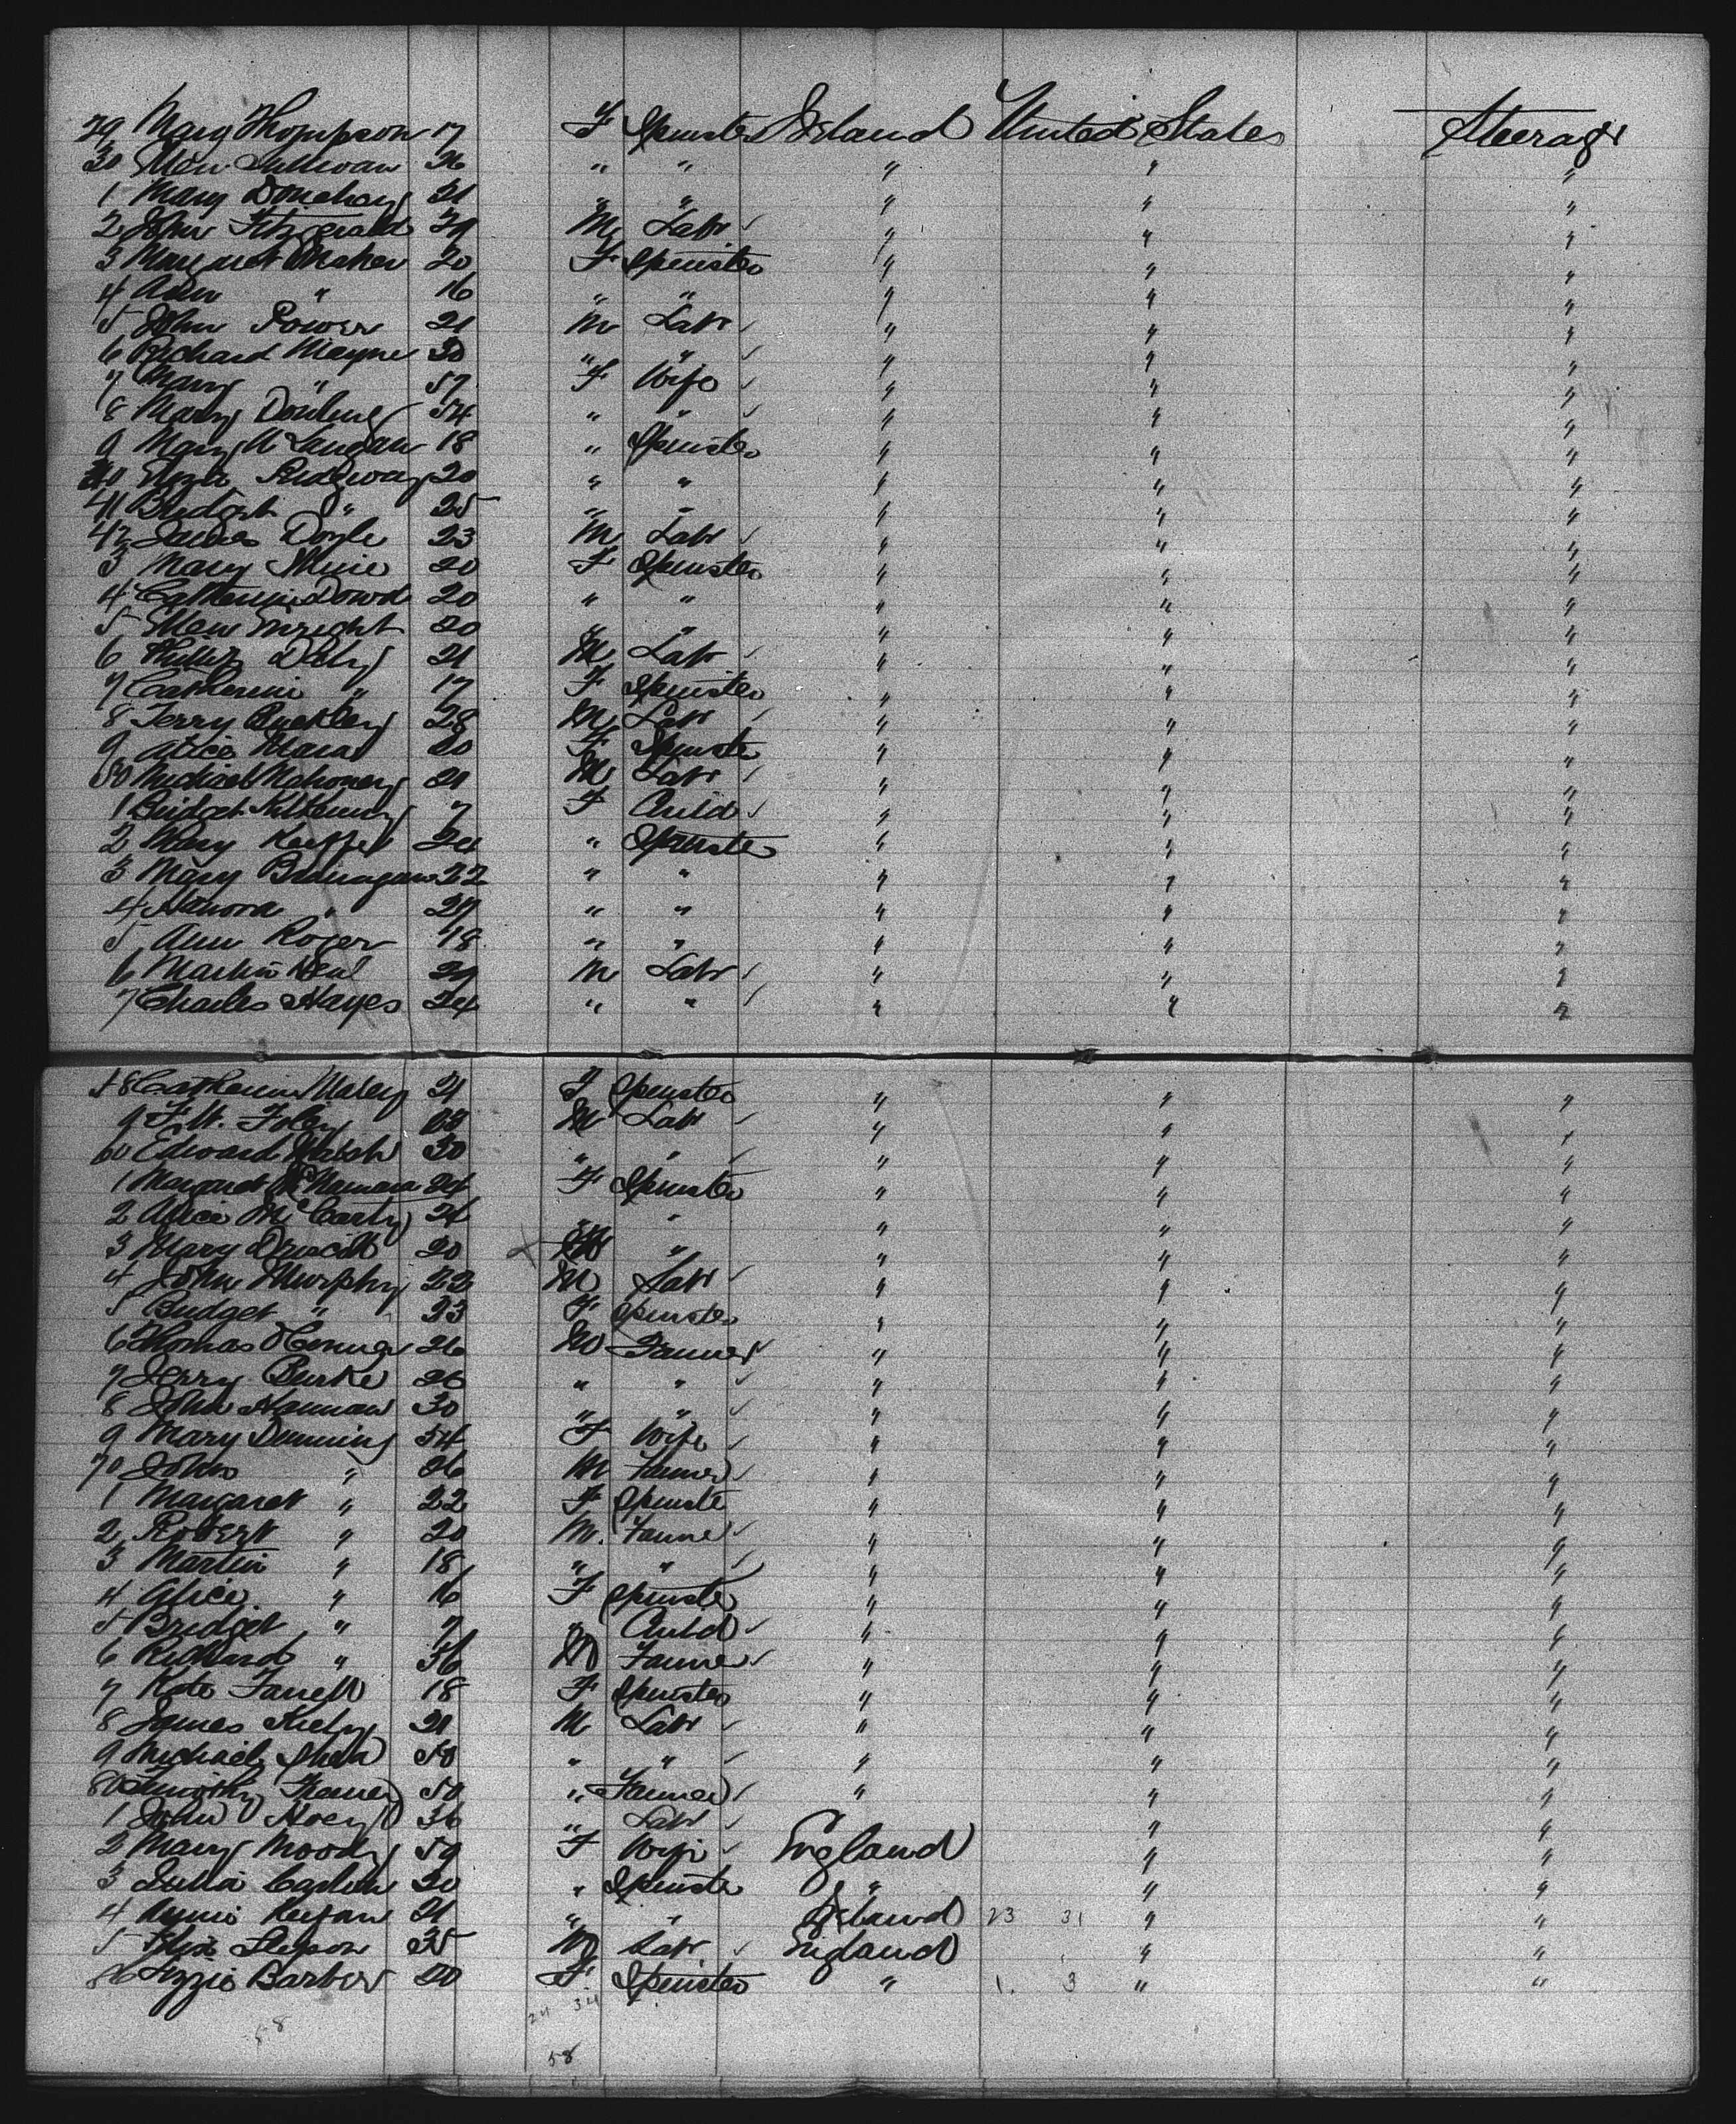 29 Mary Thompson 17 F Spinster Ireland United States Steerage
30 Ellen Sullivan 26 " " " " "
1 Mary Donehoy 21 " " " " "
2 John Fitzgerald 29 M Labr " " "
3 Margaret Maher 20 F Spinster " " "
4 Ann " 16 " " " " "
5 John Power 21 M Labr " " "
6 Richard Wayne 30 " " " " "
7 Mary " 57 F Wife " " "
8 Mary Dowling 54 " " " " "
9 Mary A Landan 18 " Spinster " " "
40 Eliza Ridgway 20 " " " " "
41 Bridget " 25 " " " " "
42 James Doyle 23 M Labr " " "
3 Mary 20 F Spinster " " "
4 Catherine Dowd 20 " " " " "
5 Ellen Enright 20 " " " " "
6 Phillip 21 M Labr " " "
7 Catherine " 17 F Spinster " " "
8 Terry Buckley 28 M Labr " " "
9 Alice Mara 20 F Spinster " " "
50 Michael Mahoney 21 M Labr " " "
1 Bridget Kilkenny 7 F Child " " "
2 Mary Keeffe 24 " Spinster " " "
3 Mary Branagan 22 " " " " "
4 Hanora " 27 " " " " "
5 Ann Roger 18 " " " " "
6 Martin Neal 29 M Labr " " "
7 Charles Hayes 24 " " " " "
58 Catherine Maley 21 F Spinster " " "
9 Foley M Labr " " "
60 Edward Walsh 30 " " " " "
1 Margaret McNamara 24 F Spinster " " "
2 Alice McCarty 24 " " " " "
3 Mary Driscoll 20 " " " "
4 John Murphy 22 M Labr " " "
5 Bridget " 23 F Spinster " " "
6 Thomas 26 M Farmer " " "
7 Jerry Burke 26 " " " " "
8 John Hannan 30 " " " " "
9 Mary Dunning 54 F Wife " " "
70 John " 26 M Farmer " " "
1 Margaret " 22 F Spinster " " "
2 Robert " 20 M. Farmer " " "
3 Martin " 18 " " " " "
4 Alice " 16 F Spinster " " "
5 Bridget " 7 " Child " " "
6 Richard " 36 M Farmer " " "
7 Kate Farrell 18 F Spinster " " "
8 James Kiely 21 M Labr " " "
9 Michael Shea 50 " " " " "
80 Timothy 50 " Farmer " " "
1 John Hoey 36 " Labr " "
2 Mary Moody 59 F Wife England " "
3 Julia 20 " Spinster " " "
4 Annie Keegan 21 " " Ireland 23 31 " "
5 35 M Labr England " "
86 Lizzie Barber 20 F Spinster " 1. 3 " "
24 34
58
58